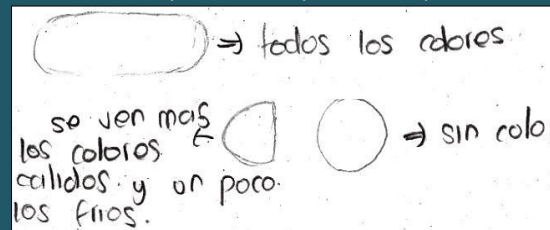 ⇒ todos los colores
se ven mas ←
los colores
calidos y un poco.
los frios.
⇒ sin colo